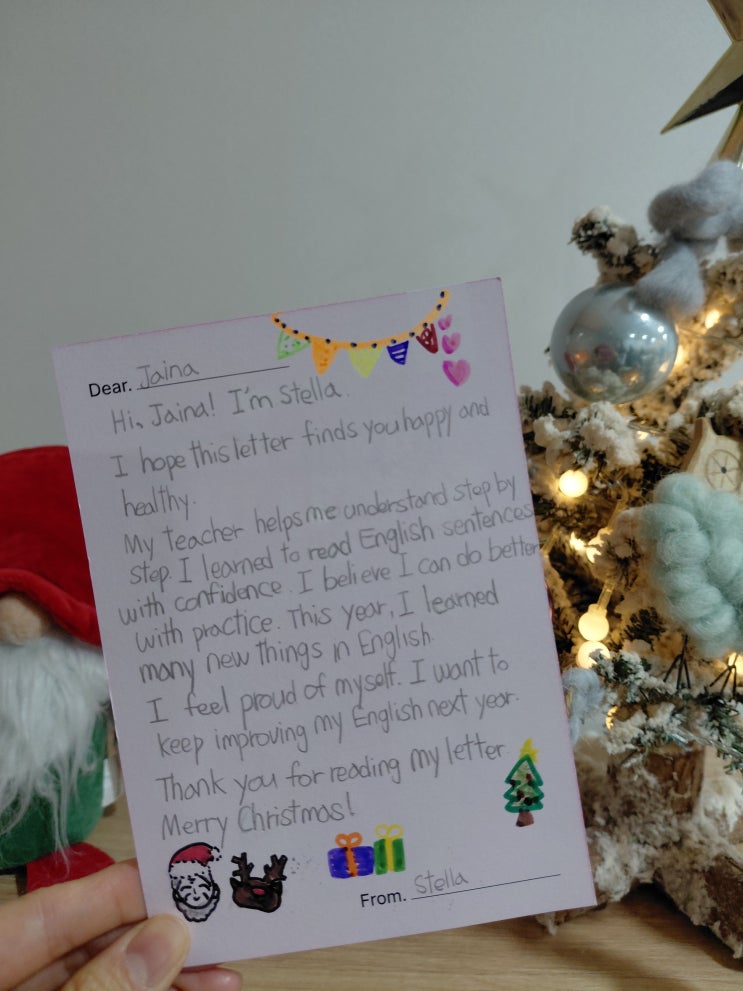 Dear. Jaina
Hi, Jaina! I'm Stella.
I hope this letter finds you happy and
healthy.
My teacher helps me understand step by
step. I learned to read English sentences
with confidence. I believe I can do better
with practice. This year, I learned
many new things in English.
I feel proud of myself. I want to
keep improving my English next year.
Thank you for reading my letter.
Merry Christmas!
From. Stella